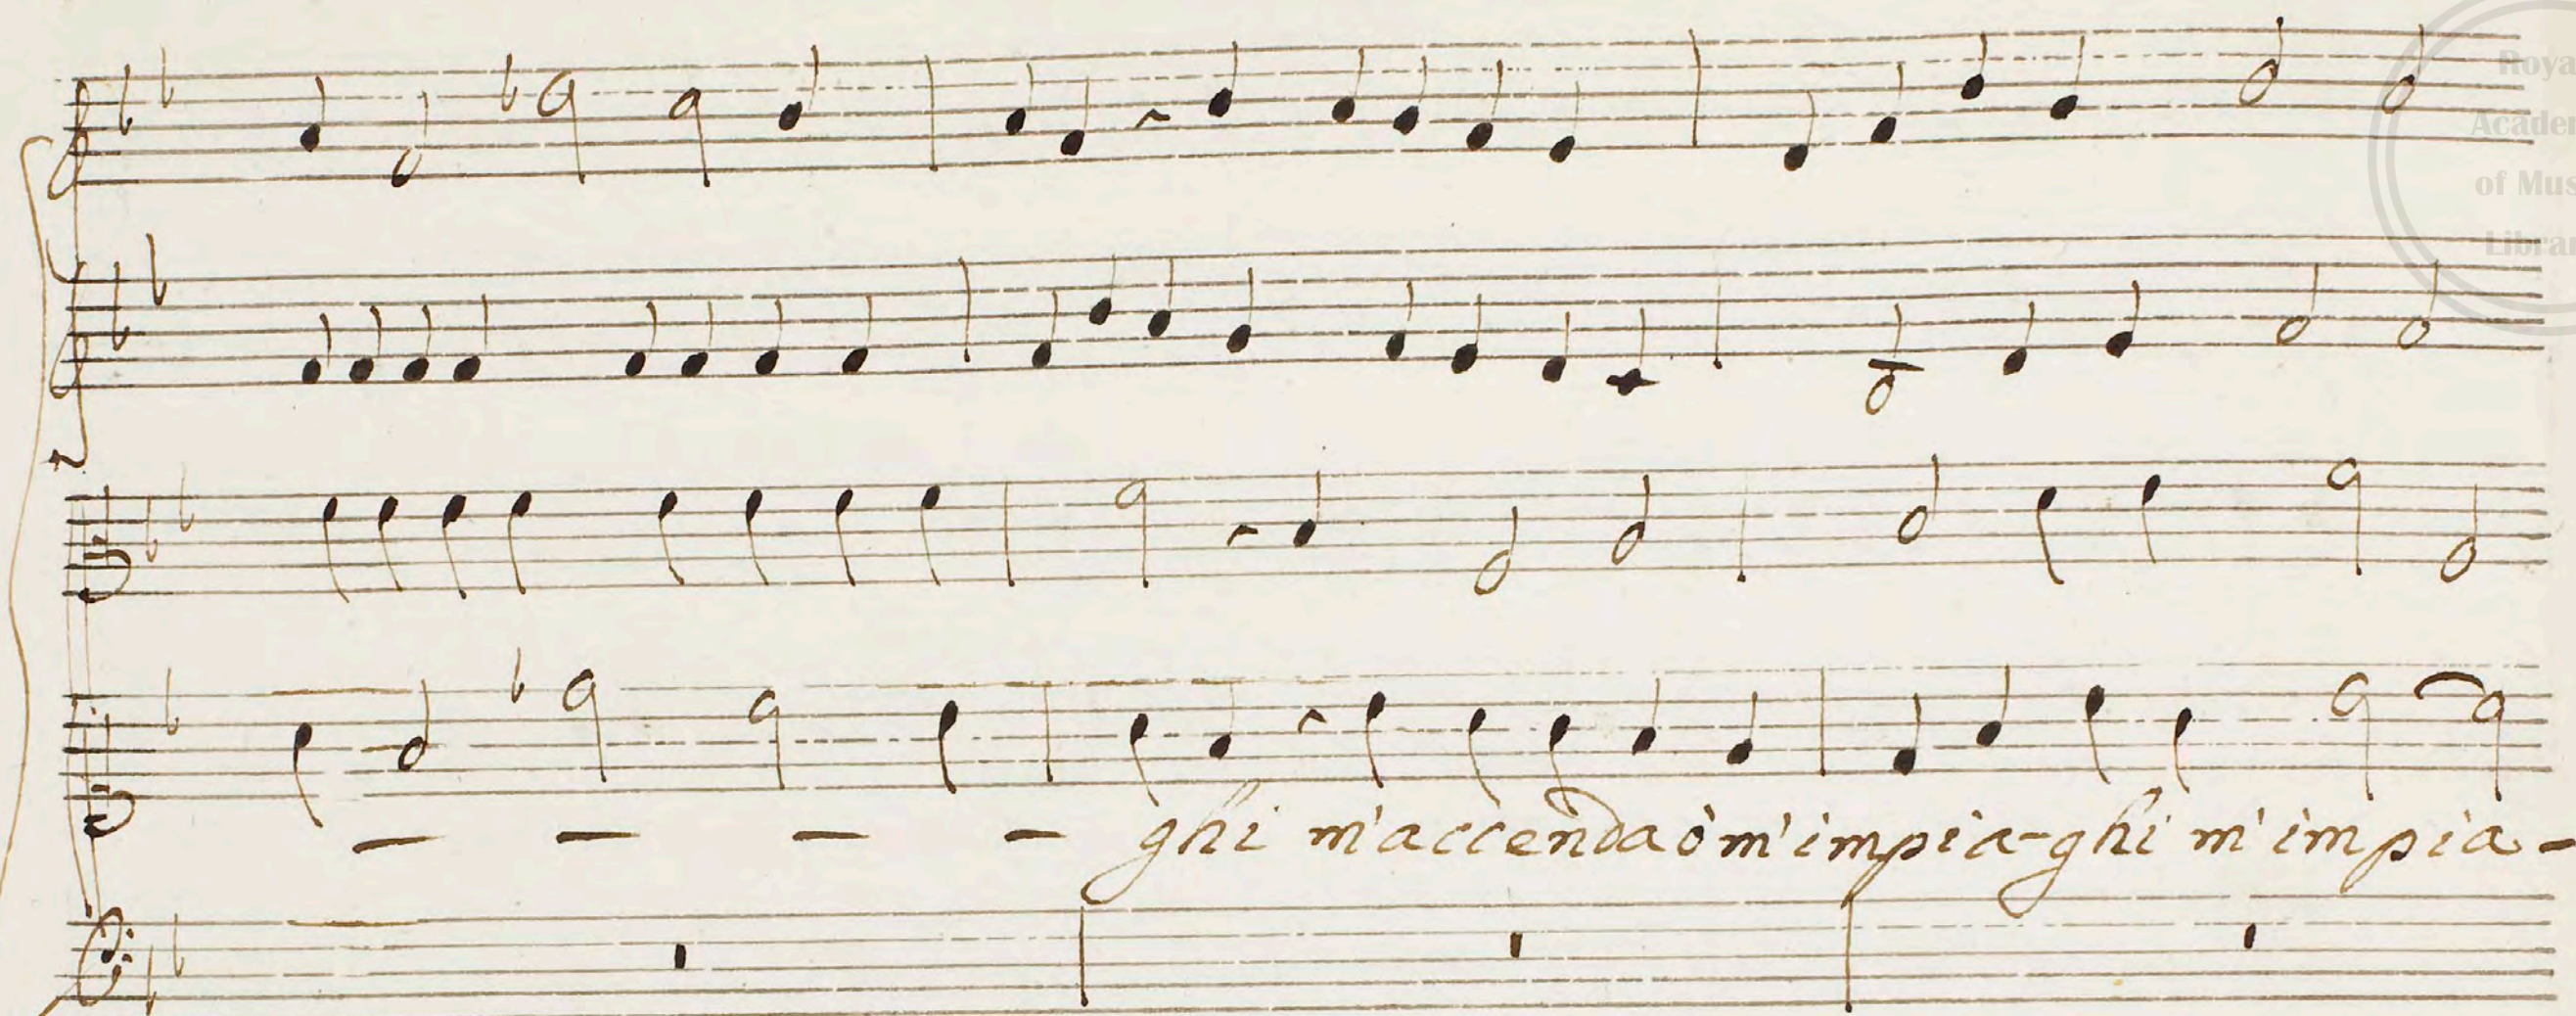 Royal
Academ
of Mus
Librar
ghi m'accenda ò m'impia-ghi m'impia-